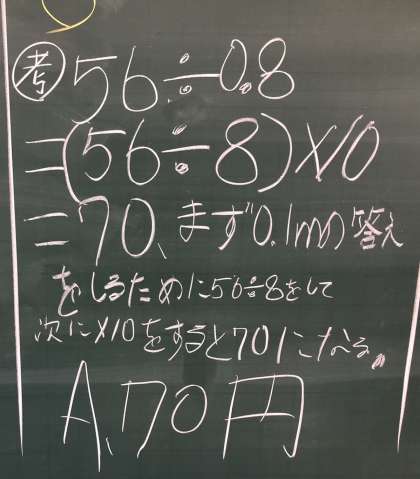 考 56÷0.8
=(56÷8)×10
=70、まず0.1mの答え
をしるために56÷8をして
次に×10をすると70になる。
A、70円